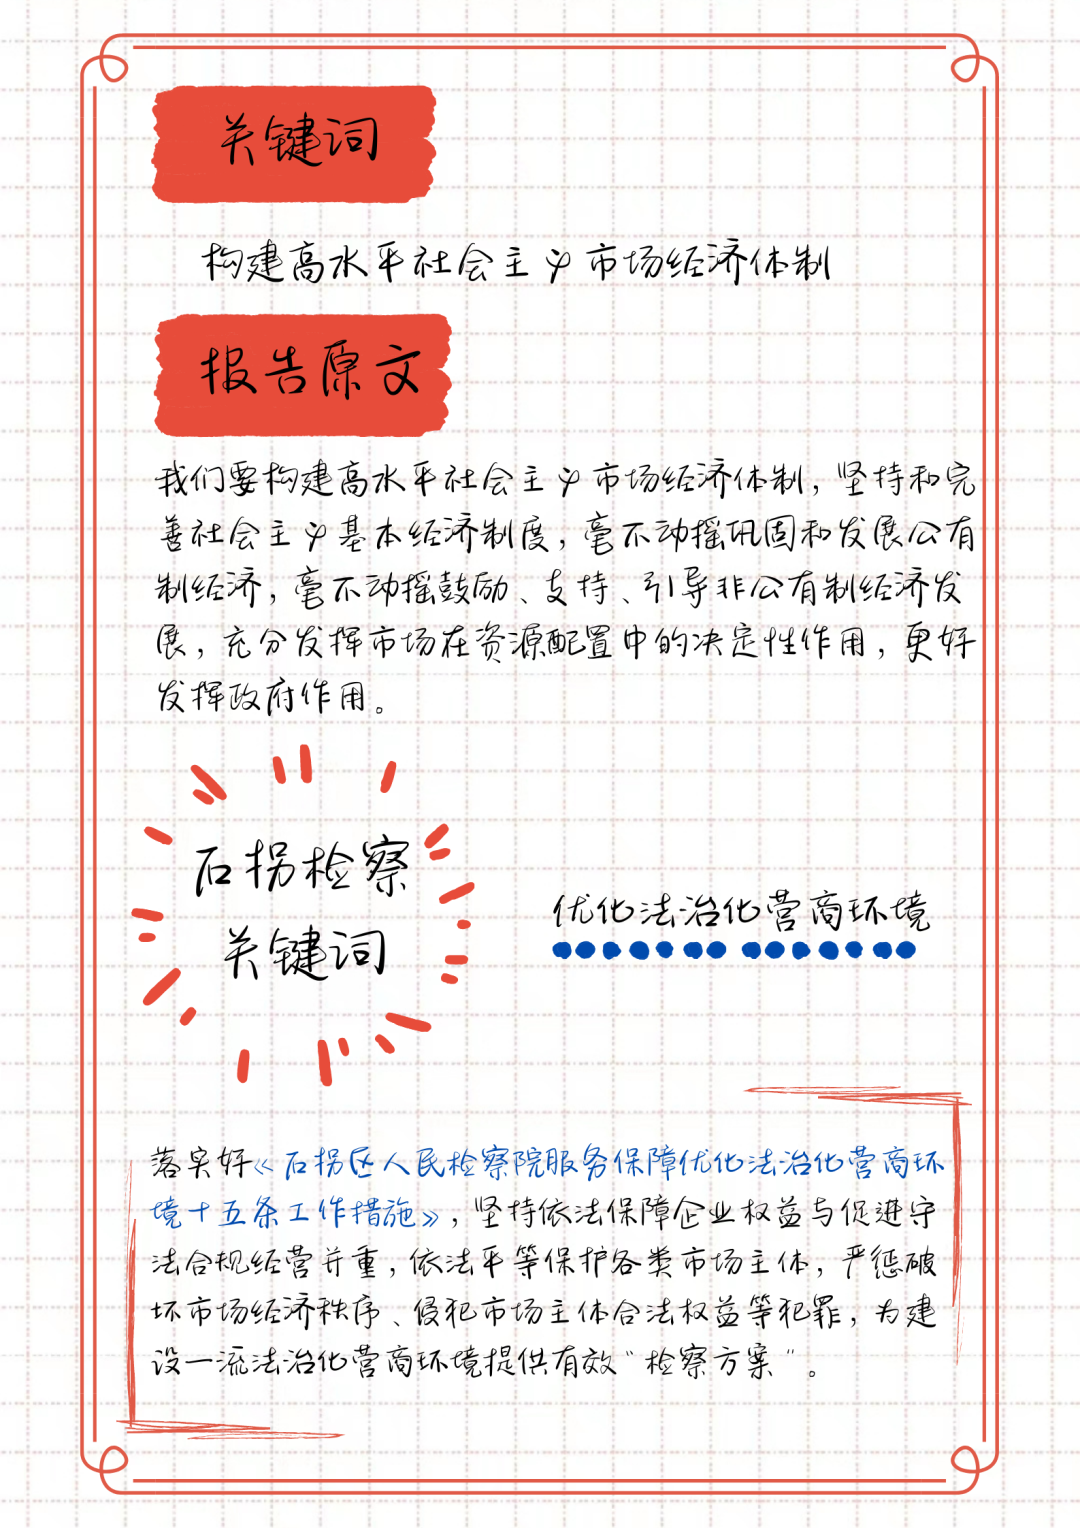 关键词
构建高水平社会主义市场经济体制
报告原文
我们要构建高水平社会主义市场经济体制，坚持和完
善社会主义基本经济制度，毫不动摇巩固和发展公有
制经济，毫不动摇鼓励、支持、引导非公有制经济发
展，充分发挥市场在资源配置中的决定性作用，更好
发挥政府作用。
石拐检察
关键词
优化法治化营商环境
落实好《石拐区人民检察院服务保障优化法治化营商环
境十五条工作措施》，坚持依法保障企业权益与促进守
法合规经营并重，依法平等保护各类市场主体，严惩破
坏市场经济秩序、侵犯市场主体合法权益等犯罪，为建
设一流法治化营商环境提供有效“检察方案”。